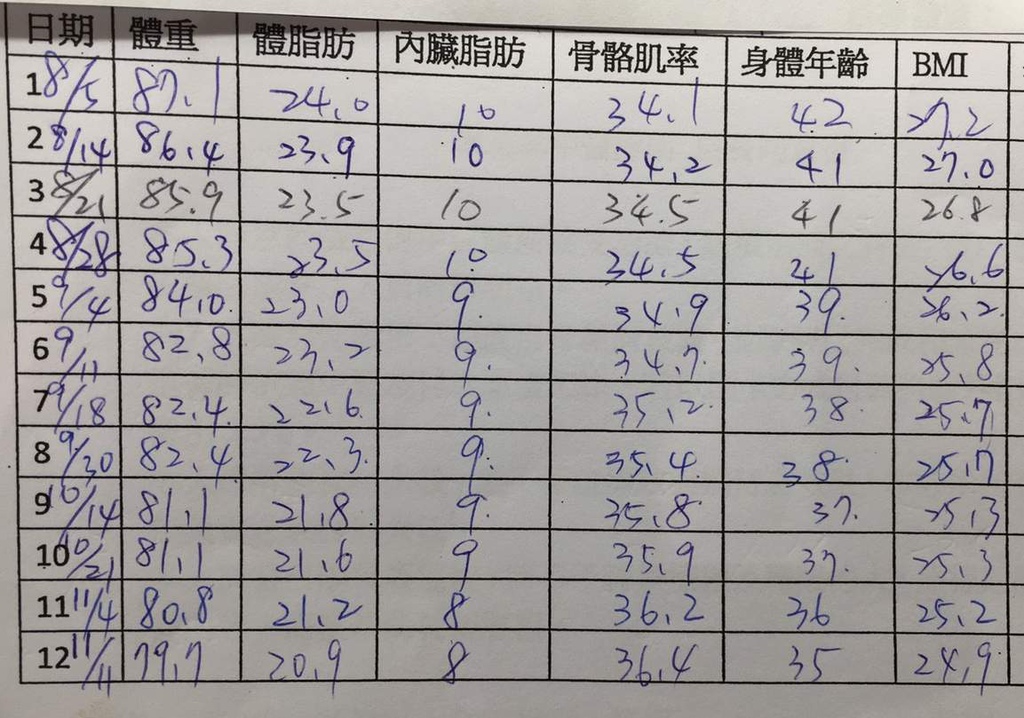 日期 體重 體脂肪 內臟脂肪 骨骼肌率 身體年齡 BMI
1 8/5 87.1 24.0 10 34.1 42 27.2
2 8/14 86.4 23.9 10 34.2 41 27.0
3 8/21 85.9 23.5 10 34.5 41 26.8
4 8/28 85.3 23.5 10 34.5 41 26.6
5 9/4 84.0 23.0 9 34.9 39 26.2
6 9/11 82.8 23.2 9 34.7 39 25.8
7 9/18 82.4 22.6 9 35.2 38 25.7
8 9/30 82.4 22.3 9 35.4 38 25.7
9 10/14 81.1 21.8 9 35.8 37 25.3
10 10/21 81.1 21.6 9 35.9 37 25.3
11 11/4 80.8 21.2 8 36.2 36 25.2
12 11/11 79.7 20.9 8 36.4 35 24.9